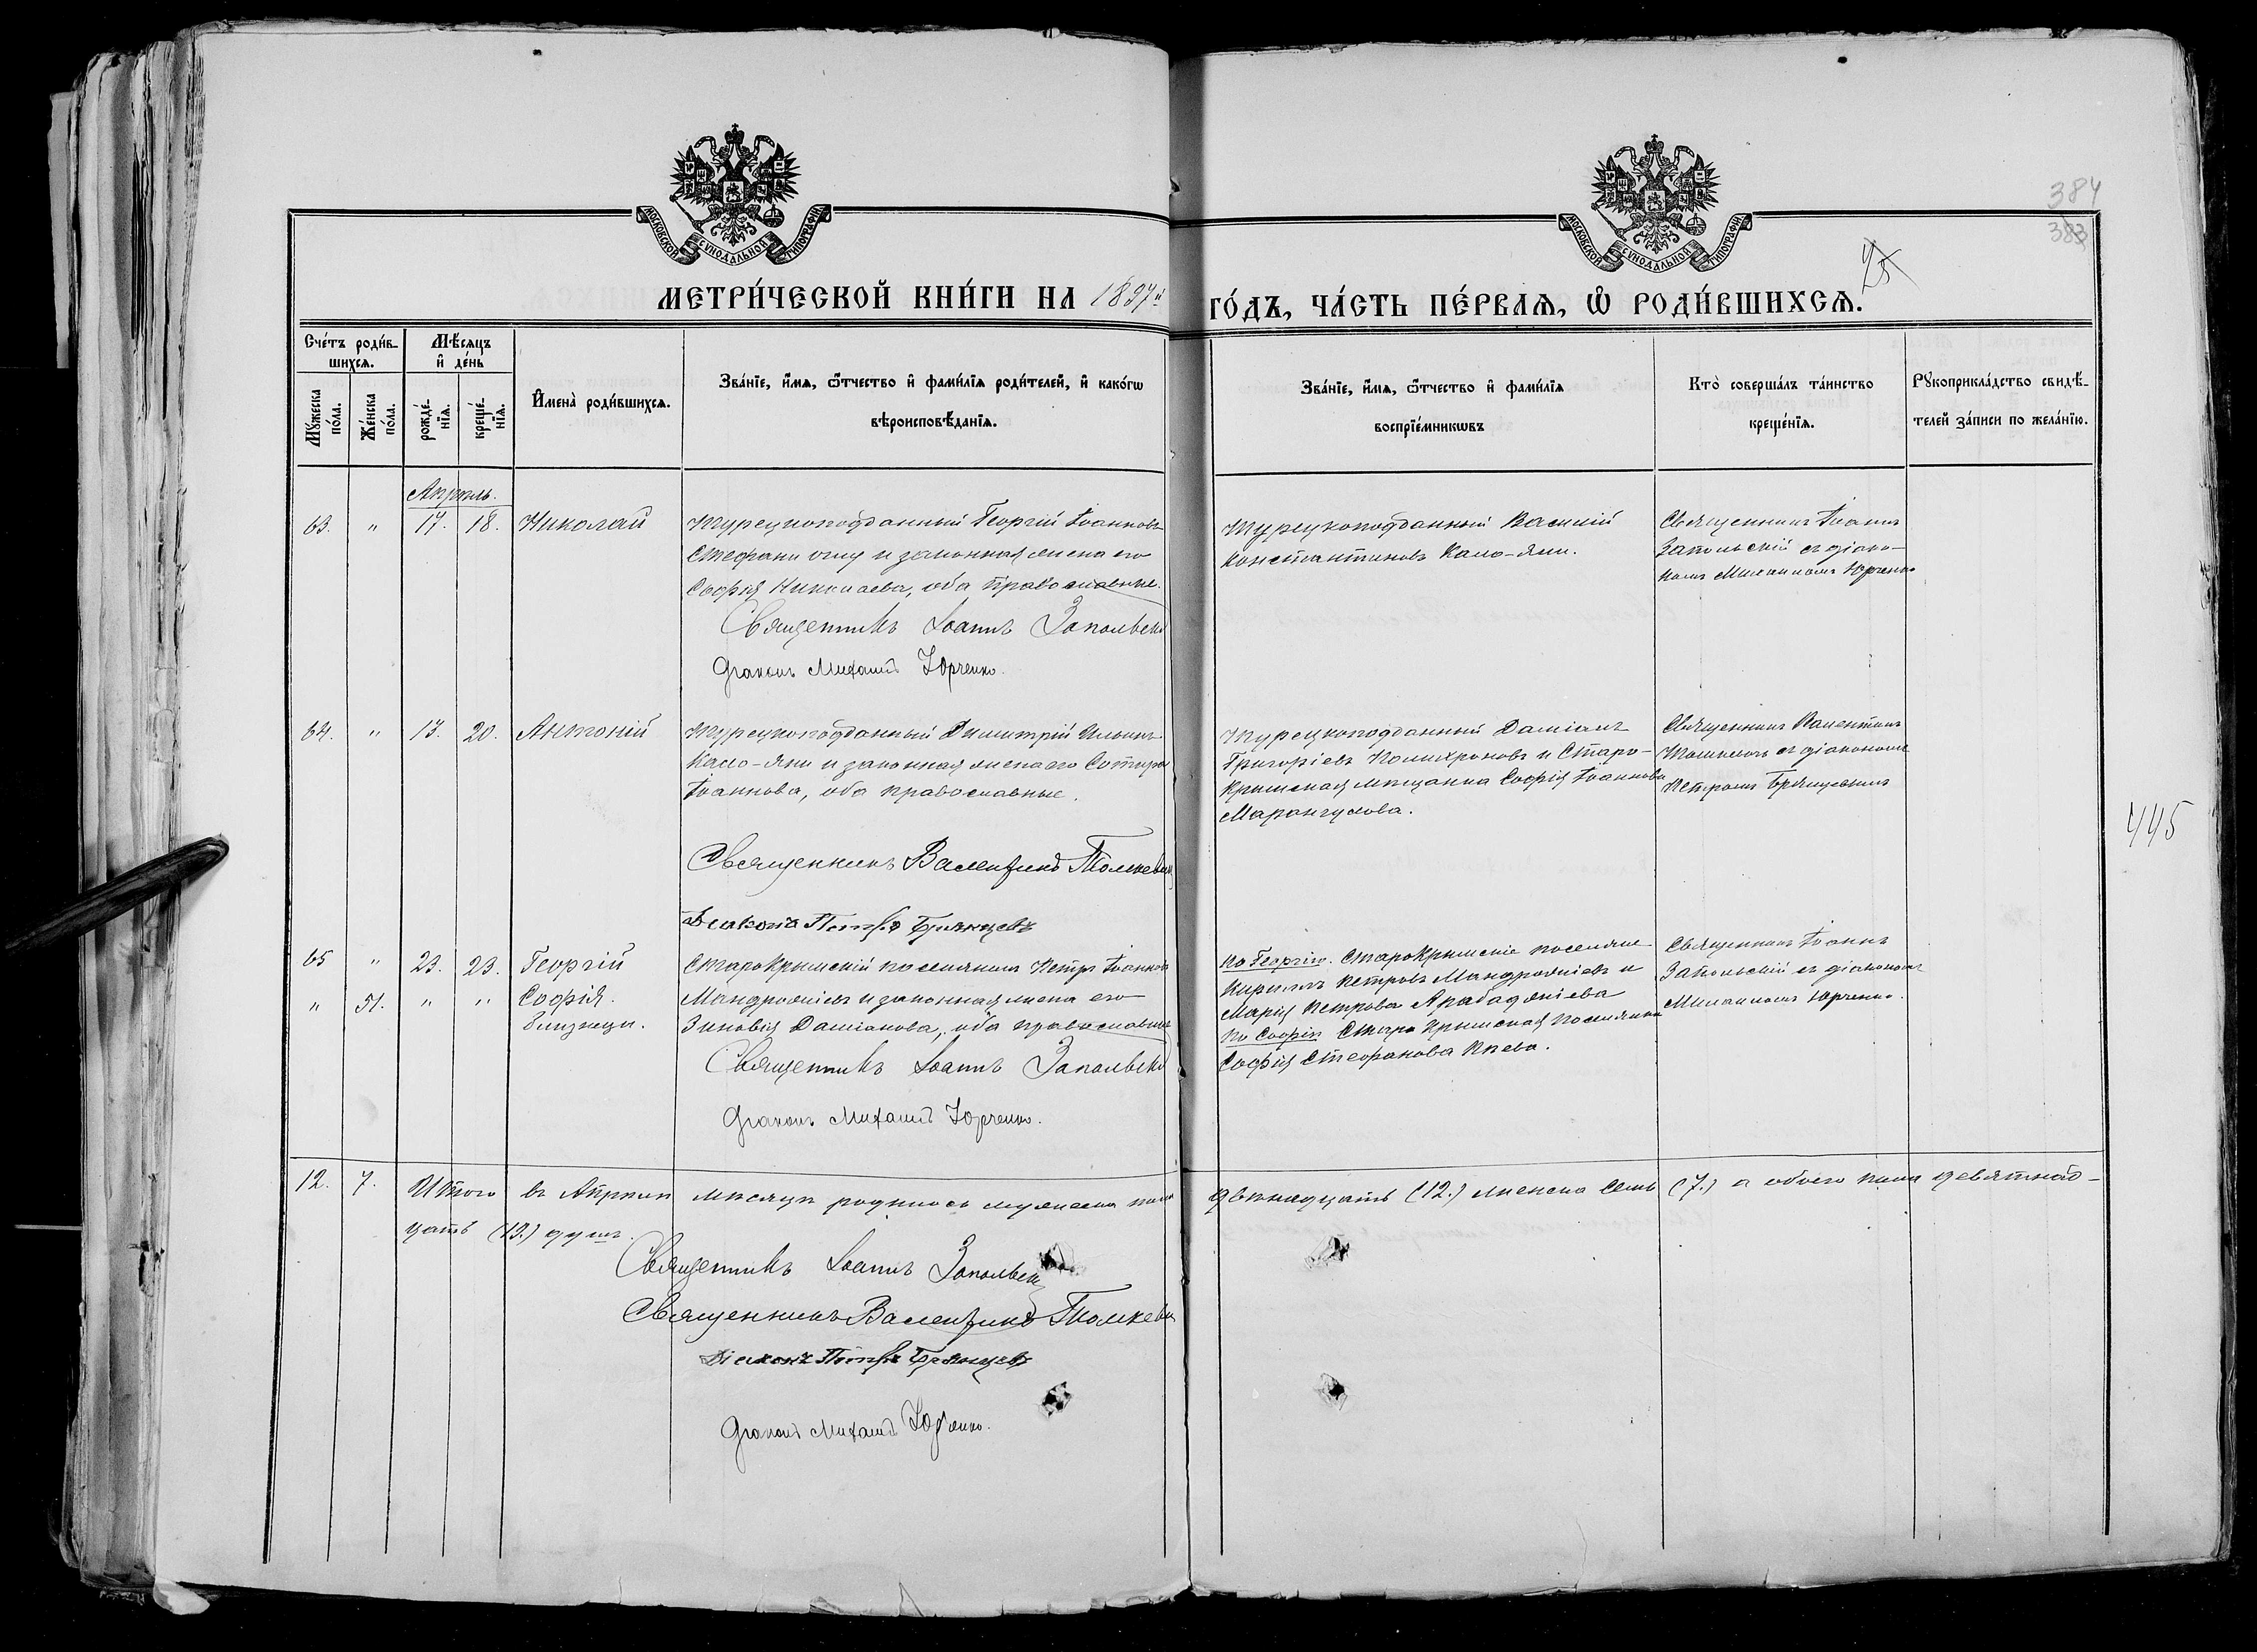 МОСКОВСКОЙ СѴНОДАЛЬНОЙ ТИПОГРАФІИ
МОСКОВСКОЙ СѴНОДАЛЬНОЙ ТИПОГРАФІИ
384
383
25
МЕТРИ́ЧЕСКОЙ КНИ́ГИ НА 1897й ГО́ДЪ, ЧА́СТЬ ПЕ́РВАЯ, Ѽ РОДИ́ВШИХСЯ.
Сче́тъ роди́в-
шихся.
Мꙋ́жеска
по́ла.
Же́нска
по́ла.
Мѣ́сяцъ
и҆ де́нь
рожде́-
нїя.
креще́-
нїя.
И҆мена̀ роди́вшихся.
Зва́нїе, и҆́мя, ѻ҆́тчество и҆ фами́лїя роди́телей, и҆ како́гѡ
вѣроисповѣ́данїя.
Зва́нїе, и҆́мя, ѻ҆́тчество и҆ фами́лїя
воспрїе́мникѡвъ
Кто̀ соверша́лъ та́инство
креще́нїя.
Рꙋкоприкла́дство свидѣ́-
телей за́писи по жела́нїю.
Апрѣль.
63. " 17. 18. Николай
Турецкоподданный Георгій Іоанновъ
Стефани оглу и законная жена его
Софія Николаева, оба православные.
Священникъ Іоаннъ Запольскій
Діаконъ Михаилъ Юрченко.
Турецкоподданный Василій
Константиновъ Кало-яни.
Священникъ Іоаннъ
Запольскій съ діако-
номъ Михаиломъ Юрченко
64. " 13. 20. Антоній
Турецкоподданный Димитрій Ильинъ
Кало-яни и законная жена его Сотира
Іоаннова, оба православные.
Священникъ Валентинъ Толкевичъ
Діаконъ Петръ Брянцевъ
Турецкоподданный Даміанъ
Григоріевъ Полихроновъ и Старо-
крымская мѣщанка Софія Іоаннова
Марангулова.
Священникъ Валентинъ
Толкевичъ съ діакономъ
Петромъ Брянцевымъ
445
65 " 23. 23. Георгій
" 51. " " Софія.
близнецы.
Старокрымскій поселянинъ Петръ Іоанновъ
Мандражіевъ и законная жена его
Зиновія Даміанова, оба православные
Священникъ Іоаннъ Запольскій
Діаконъ Михаилъ Юрченко.
По Георгію. Старокрымскіе поселяне
Кириллъ Петровъ Мандражіевъ и
Марія Петрова Арабаджіева
По Софіи. Старокрымская поселянка
Софія Стефанова
Священникъ Іоаннъ
Запольскій съ діакономъ
Михаиломъ Юрченко.
12. 7. Итого въ Апрѣлѣ мѣсяцѣ родилось мужеска пола двѣнадцать (12.) женска семь (7.) а обоего пола девятнад-
цать (19.) душъ.
Священникъ Іоаннъ Запольскій
Священникъ Валентинъ Толкевичъ
Діаконъ Петръ Брянцевъ
Діаконъ Михаилъ Юрченко.